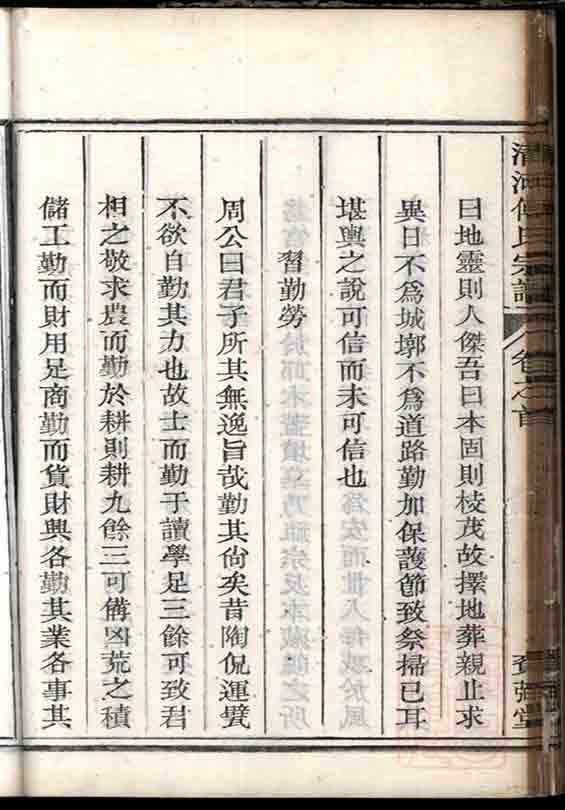 清河傅氏宗譜 卷之首
曰地靈則人傑吾曰本固則枝茂故擇地葬親止求
異日不爲城墎不爲道路勤加保護節致祭掃已耳
堪輿之說可信而未可信也
習勤勞
周公曰君子所其無逸旨哉勤其尚矣昔陶侃運甓
不欲自勤其力也故士而勤于讀學足三餘可致君
相之敬求農而勤於耕則耕九餘三可備凶荒之積
儲工勤而財用足商勤而貨財興各勤其業各事其